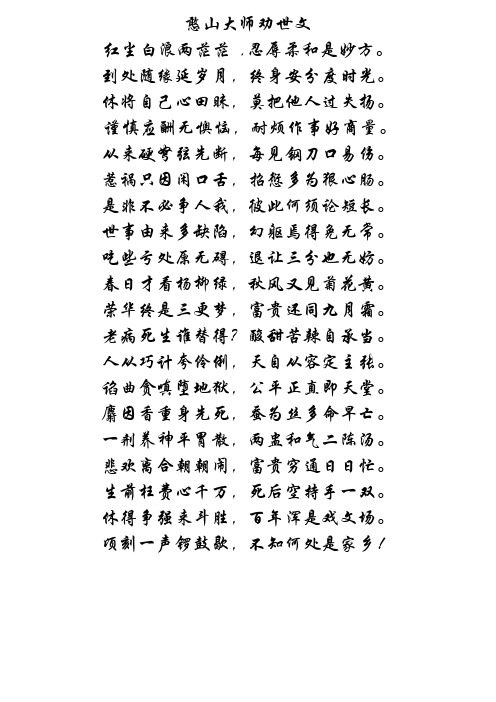 憨山大师劝世文
红尘白浪两茫茫，忍辱柔和是妙方。
到处随缘延岁月，终身安分度时光。
休将自己心田昧，莫把他人过失扬。
谨慎应酬无懊恼，耐烦作事好商量。
从来硬弩弦先断，每见钢刀口易伤。
惹祸只因闲口舌，招愆多为狠心肠。
是非不必争人我，彼此何须论短长。
世事由来多缺陷，幻躯焉得免无常。
吃些亏处原无碍，退让三分也无妨。
春日才看杨柳绿，秋风又见菊花黄。
荣华终是三更梦，富贵还同九月霜。
老病死生谁替得？酸甜苦辣自承当。
人从巧计夸伶俐，天自从容定主张。
谄曲贪嗔堕地狱，公平正直即天堂。
麝因香重身先死，蚕为丝多命早亡。
一剂养神平胃散，两盅和气二陈汤。
悲欢离合朝朝闹，富贵穷通日日忙。
生前枉费心千万，死后空持手一双。
休得争强来斗胜，百年浑是戏文场。
顷刻一声锣鼓歇，不知何处是家乡！